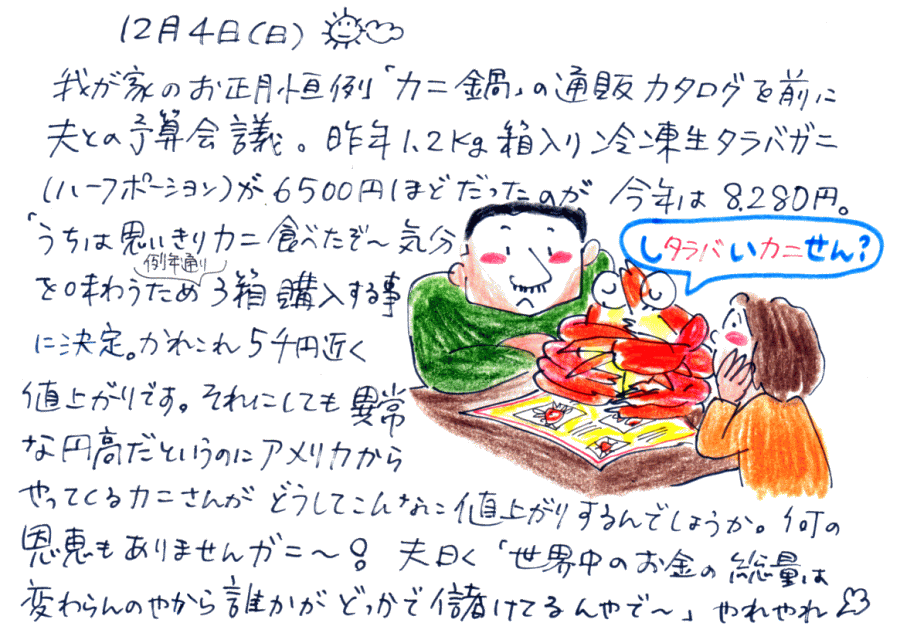 12月4日(日)
我が家のお正月恒例「カニ鍋」の通販カタログを前に
夫との予算会議。昨年1.2Kg箱入り冷凍生タラバガニ
(ハーフポーション)が6500円ほどだったのが 今年は8.280円。
「うちは思いきりカニ食べたぞ〜気分」
を味わうため例年通り3箱購入する事
に決定。かれこれ5千円近く
値上がりです。それにしても異常
な円高だというのにアメリカから
やってくるカニさんがどうしてこんなに値上がりするんでしょうか。何の
恩恵もありませんガニ〜!。夫曰く「世界中のお金の総量は
変わらんのやから誰かがどっかで儲けてるんやで〜」やれやれ
しタラバいカニせん?